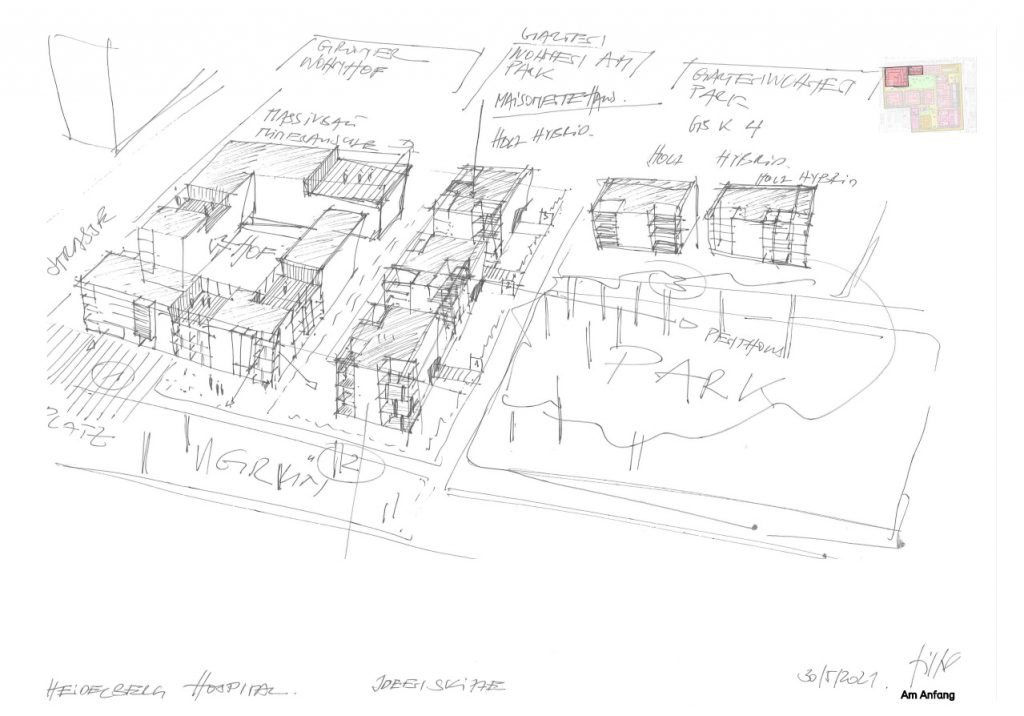 GRÜNER
WOHNHOF
GARTEN
WOHNEN AM
PARK
MAISONETTEHAUS.
HOLZ HYBRID.
GARTENWOHNEN
PARK
GK 4
HOLZ HYBRID.
HOLZ HYBRID
MASSIVBAU
MINERALISCHE
STRASSE
HOF
3
2
1
3
PARK
1
PLATZ
"GRÜN"
2
HEIDELBERG HOSPITAL.
IDEENSKIZZE
30/5/2021.
Am Anfang